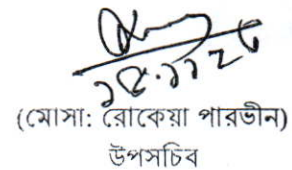 ১৫.১১২৫
(মোসা: রোকেয়া পারভীন)
উপসচিব